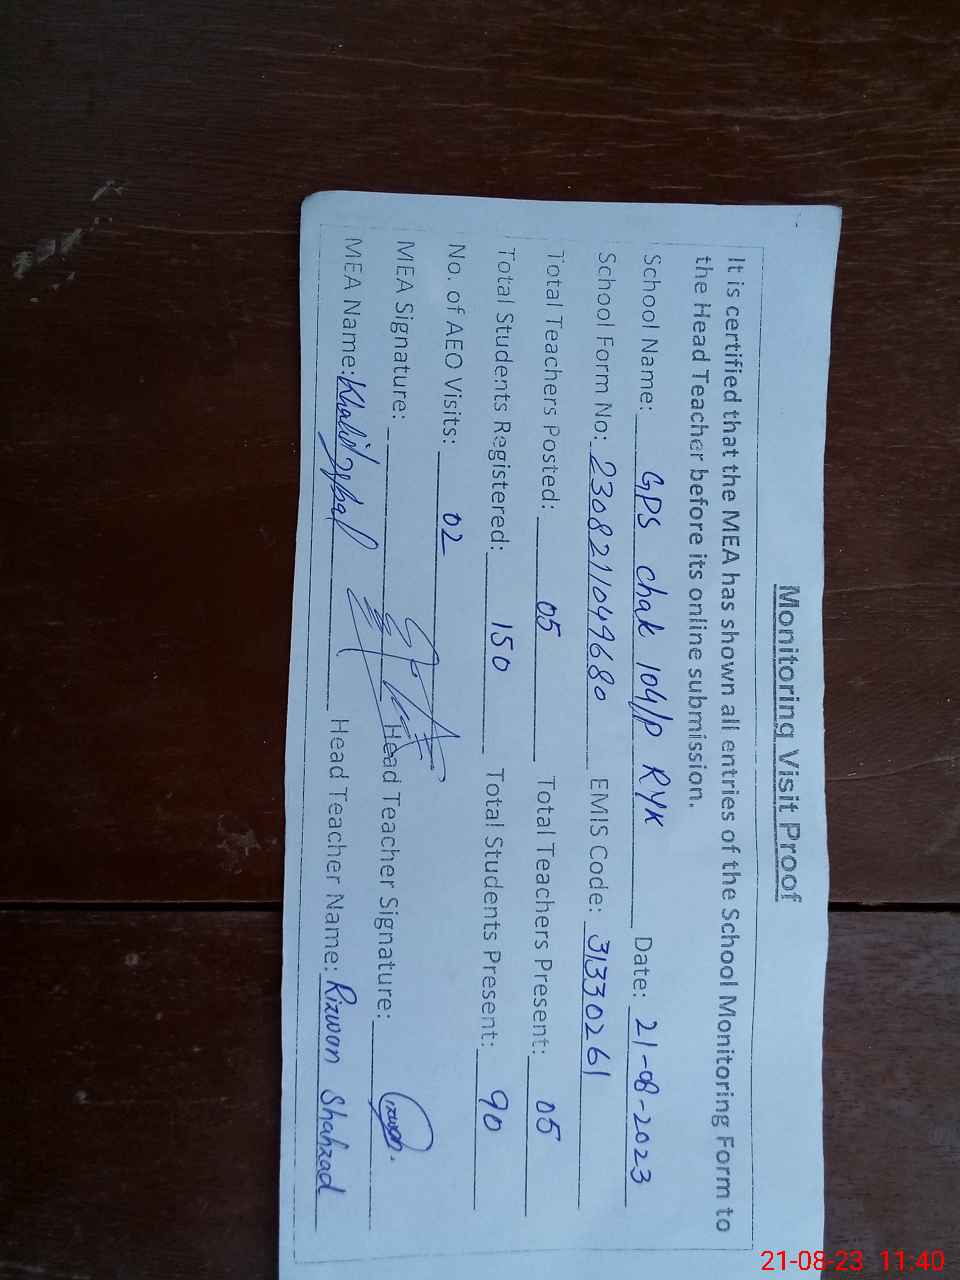 Monitoring Visit Proof
It is certified that the MEA has shown all entries of the School Monitoring Form to
the Head Teacher before its online submission.
School Name: GPS chak 104/P RYK Date: 21-08-2023
School Form No: 2308211049680 EMIS Code: 31330261
Total Teachers Posted: 05 Total Teachers Present: 05
Total Students Registered: 150 Total Students Present: 90
No. of AEO Visits: 02
MEA Signature: Head Teacher Signature: Rizwan
MEA Name: Khalid Iqbal Head Teacher Name: Rizwan Shahzad
21-08-23 11:40